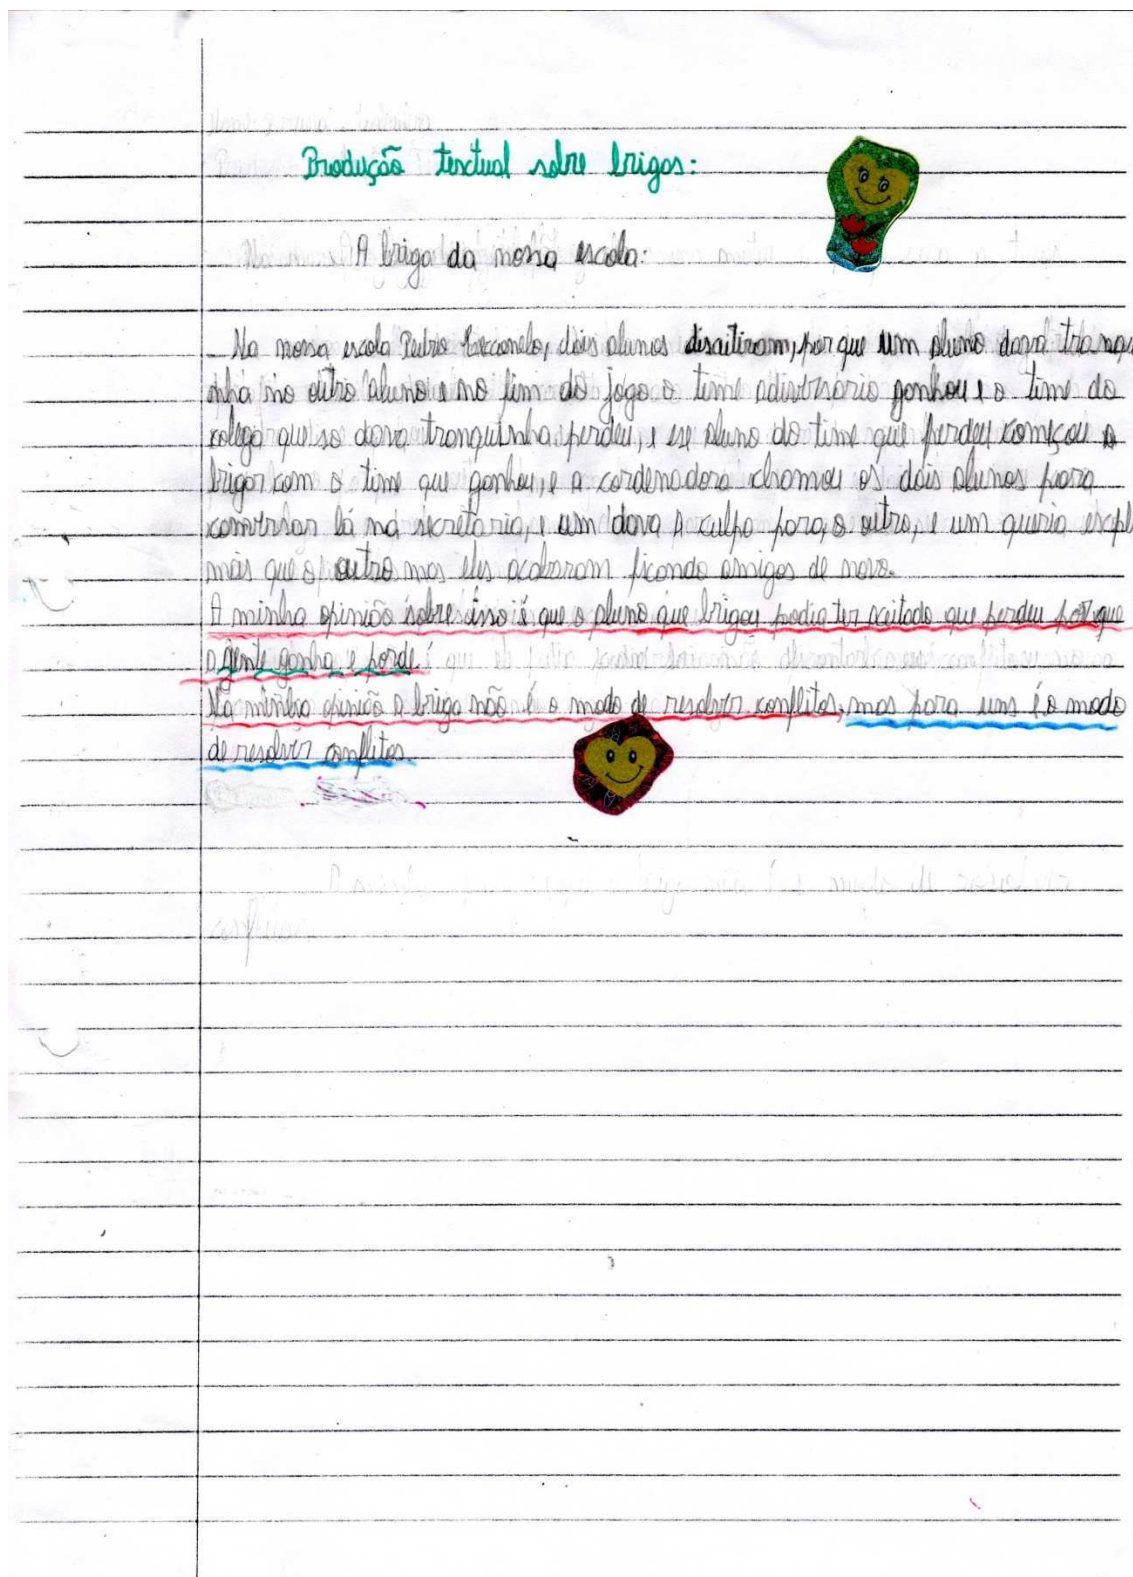 Produção textual sobre brigas:
A briga da nossa escola:
Na nossa escola Pedro, dois alunos discitiram, por que um aluno dava tranqu
inha no outro aluno e no fim do jogo o time adiversário ganhou e o time do
colega que so dava tranquinha perdeu, e ese aluno do time que perdeu começou a
brigar com o time que ganhou, e a cordenadora chamou os dois alunos para
conversar lá na secretaria, e um dava a culpa para o outro, e um queria expl
mais que o outro mas eles acabaram ficando amigos de novo.
A minha opinião sobre isso é que o aluno que brigou podia ter aceitado que perdeu por que
a gente ganha e perde
Na minha opinião a briga não é o modo de resolver conflitos, mas para uns é o modo
de resolver conflitos.